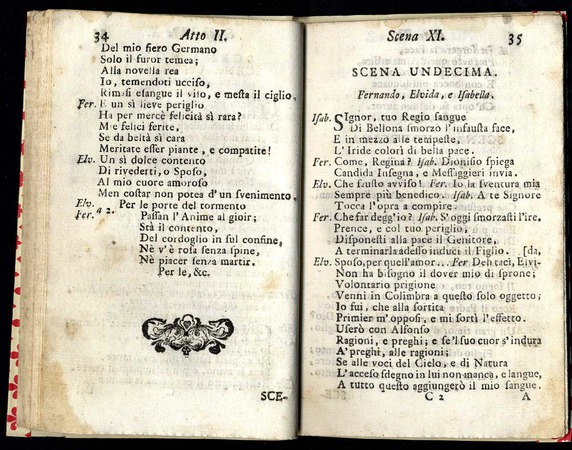 34 Atto II.
Del mio fiero Germano
Solo il furor temea;
Alla novella rea
Io, temendoti ucciso,
Rimasi esangue il viso, e mesta il ciglio,
Fer. E un sì lieve periglio
Ha per mercè felicità sì rara?
Mie felici ferite,
Se da beltà sì cara
Meritate esser piante, e compatite!
Elv. Un sì dolce contento
Di rivederti, o Sposo,
Al mio cuore amoroso
Men costar non potea d'un svenimento,
Elv. Per le porte del tormento
Fer. a 2. Passan l'Anime al gioir;
Stà il contento,
Del cordoglio in sul confine,
Nè v'è rosa senza spine,
Nè piacer senza martir.
Per le, &c.
SCE-
Scena XI. 35
SCENA UNDECIMA.
Fernando, Elvida, e Isabella.
Isab. SIgnor, tuo Regio sangue
Di Bellona smorzò l'infausta face,
E in mezzo alle tempeste,
L'Iride colorì di bella pace.
Fer. Come, Regina? Isab. Dionisio spiega
Candida Insegna, e Messaggieri invia.
Elv. Che fausto avviso! Fer. Io la sventura mia
Sempre più benedico. Isab. A te Signore
Tocca l'opra a compire.
Fer. Che far degg'io? Isab. S'oggi smorzasti l'ire,
Prence, e col tuo periglio,
Disponesti alla pace il Genitore,
A terminarla adesso induci il Figlio. [da,
Elv. Sposo, per quell'amor... Fer Deh taci, Elvi-
Non ha bisogno il dover mio di sprone;
Volontario prigione
Venni in Colimbra a questo solo oggetto;
Io fui, che alla sortita
Primier m'opposi, e mi sortì l'effetto.
Userò con Alfonso
Ragioni, e preghi; e se'l suo cuor s'indura
A' preghi, alle ragioni;
Se alle voci del Cielo, e di Natura
L'acceso sdegno in lui non manca, e langue,
A tutto questo aggiungerò il mio sangue.
C 2 A